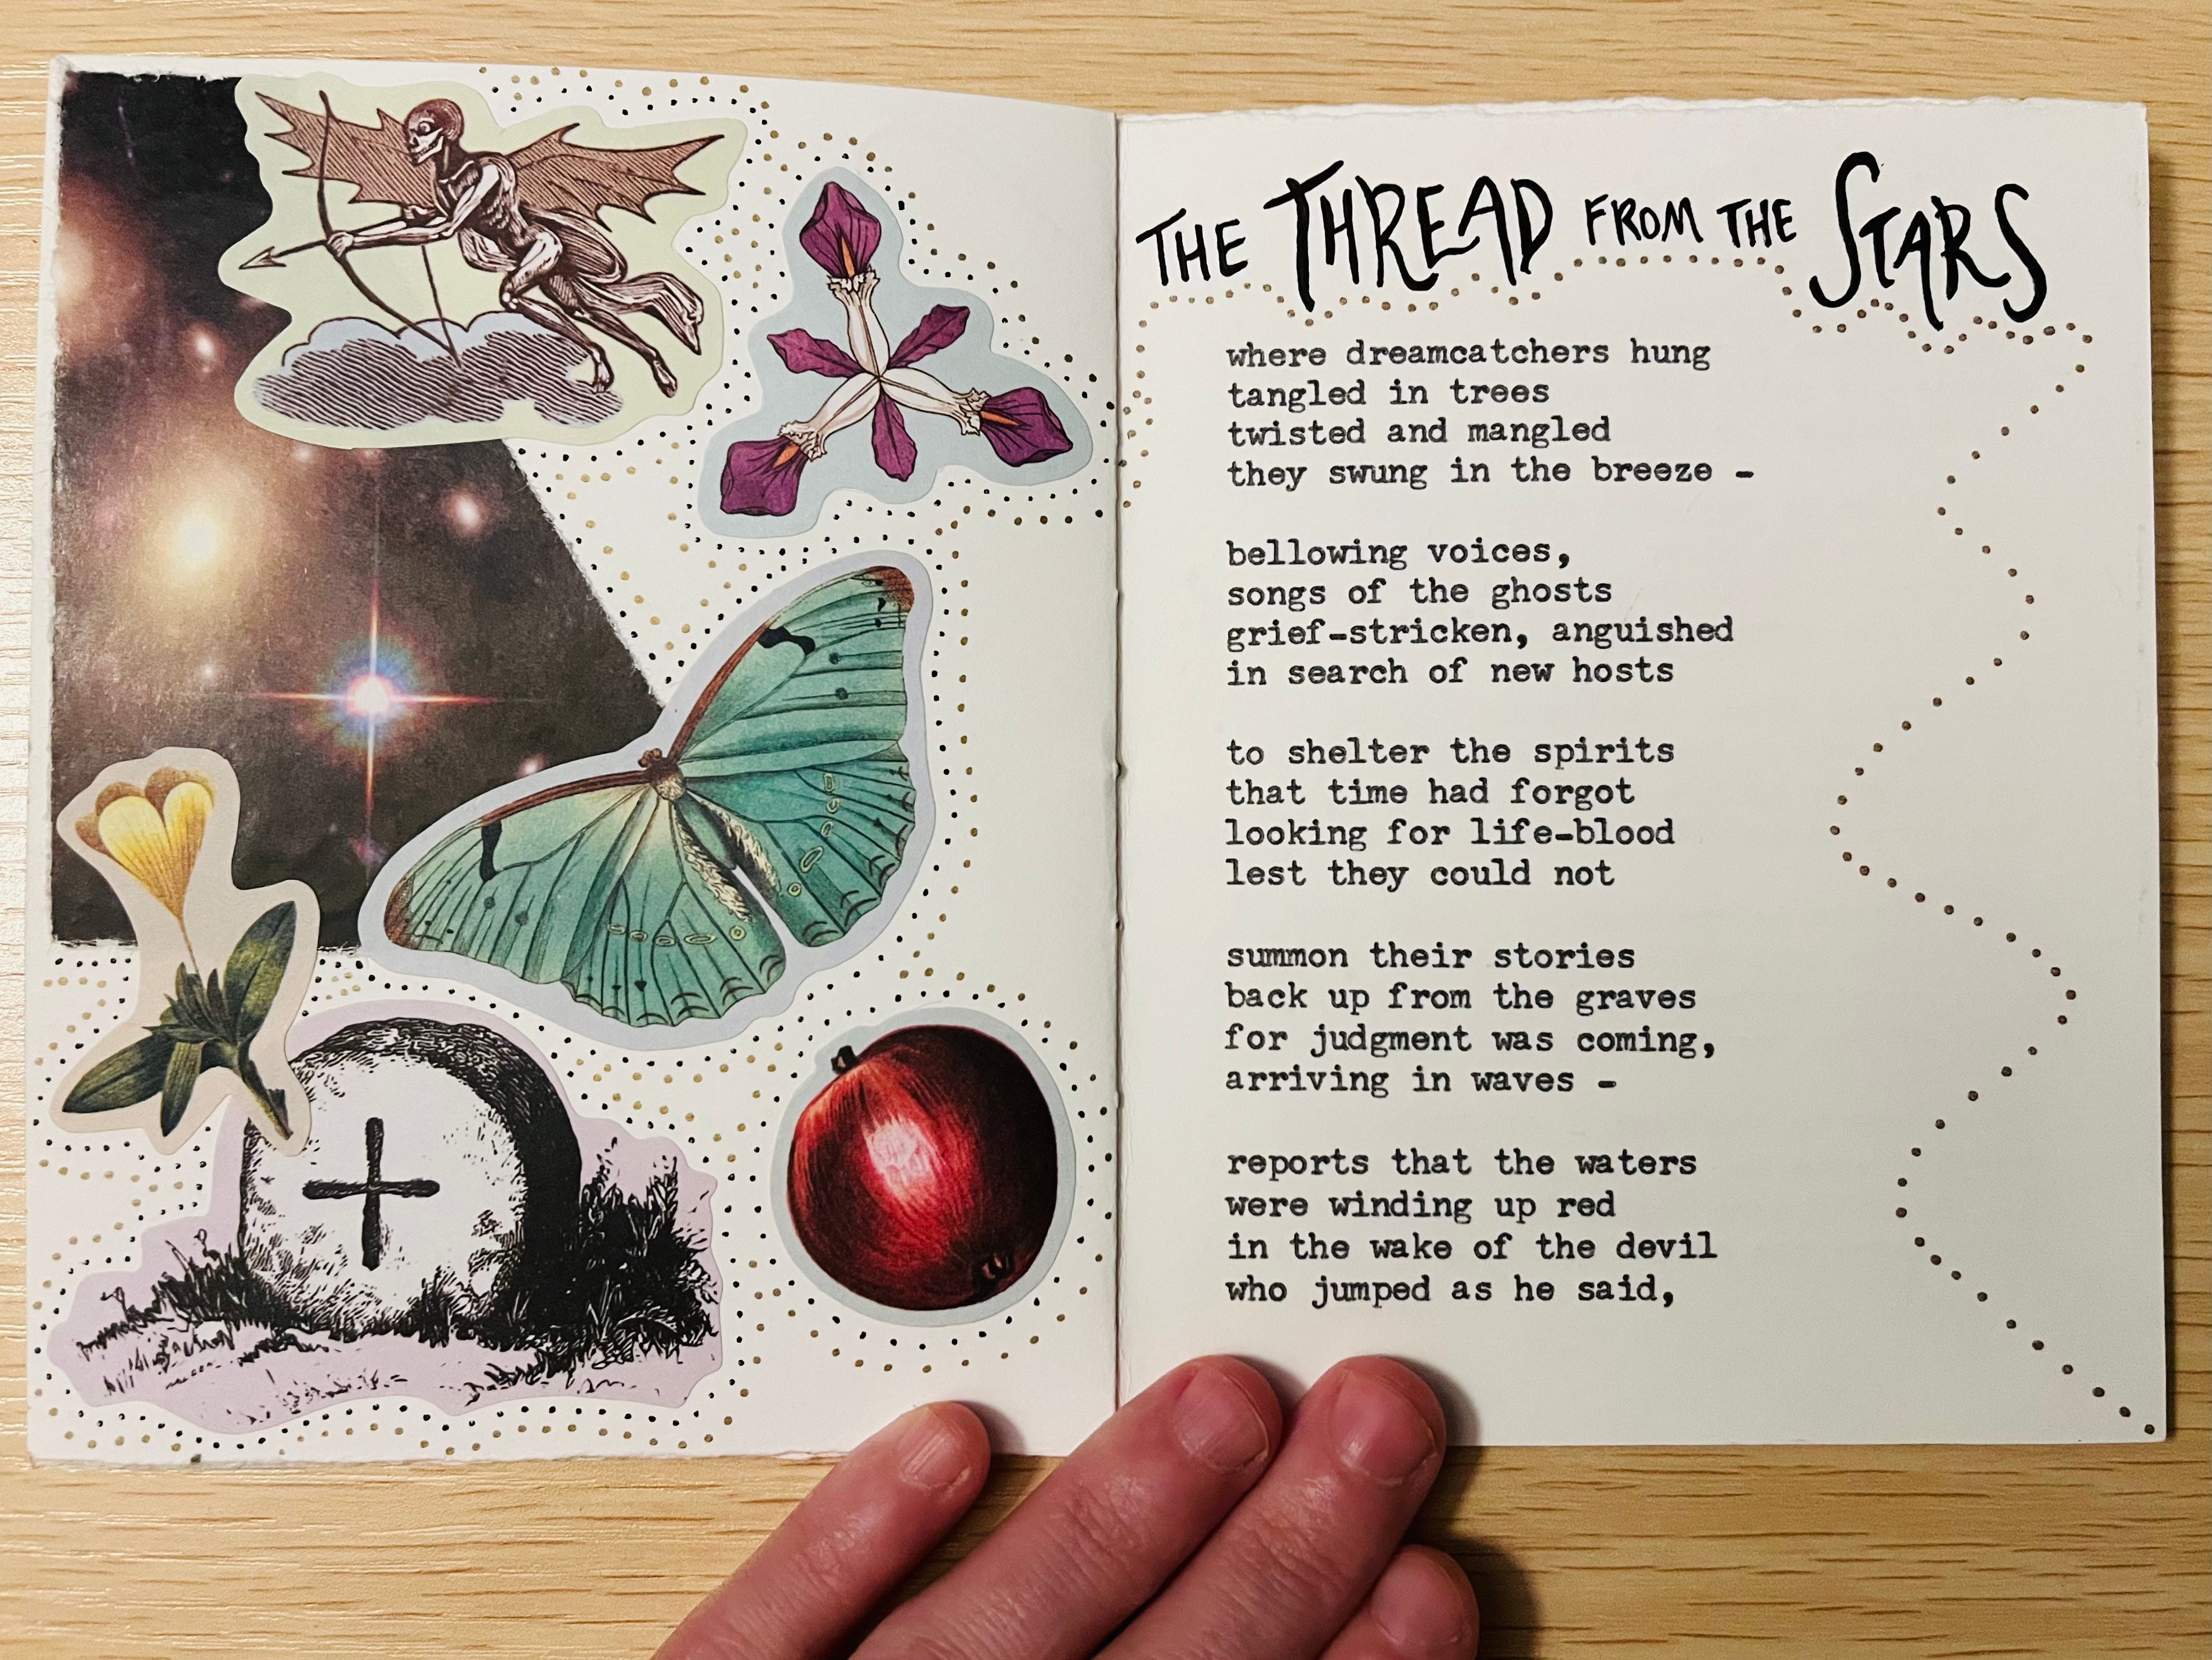 THE THREAD FROM THE STARS
where dreamcatchers hung
tangled in trees
twisted and mangled
they swung in the breeze -
bellowing voices,
songs of the ghosts
grief-stricken, anguished
in search of new hosts
to shelter the spirits
that time had forgot
looking for life-blood
lest they could not
summon their stories
back up from the graves
for judgment was coming,
arriving in waves -
reports that the waters
were winding up red
in the wake of the devil
who jumped as he said,